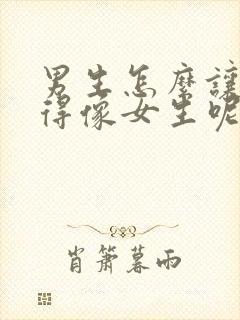 男生怎麼讓
得像女生呢
肖簫暮雨